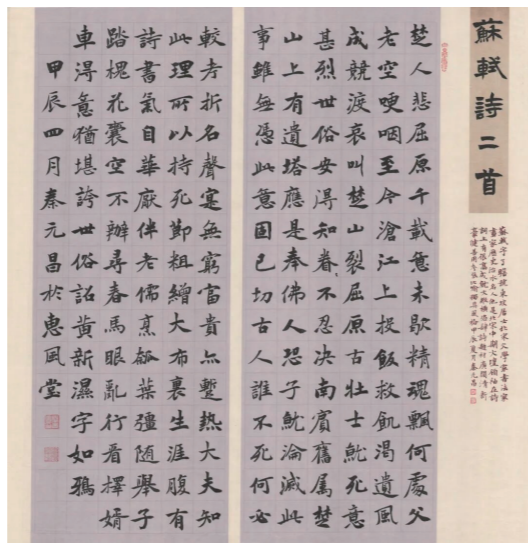 蘇軾詩二首
蘇軾字子瞻號東坡居士北宋文學家書法家
楚人悲屈原千載意未歇精魂飄何處父
老空哽咽至今滄江上投飯救飢渴遺風
成競渡哀叫楚山裂屈原古壯士就死意
甚烈世俗安得知眷〻不忍决南賓舊屬楚
山上有遺塔應是奉佛人恐子就淪滅此
事雖無憑此意固已切古人誰不死何必
較考折名聲寔無窮富貴亦暫熱大夫知
此理所以持死節粗繒大布裹生涯腹有
詩書氣自華厭伴老儒烹瓠葉彊隨舉子
踏槐花囊空不辦尋春馬眼亂行看擇婿
車得意猶堪誇世俗詔黃新濕字如鴉
甲辰四月秦元昌於惠風堂